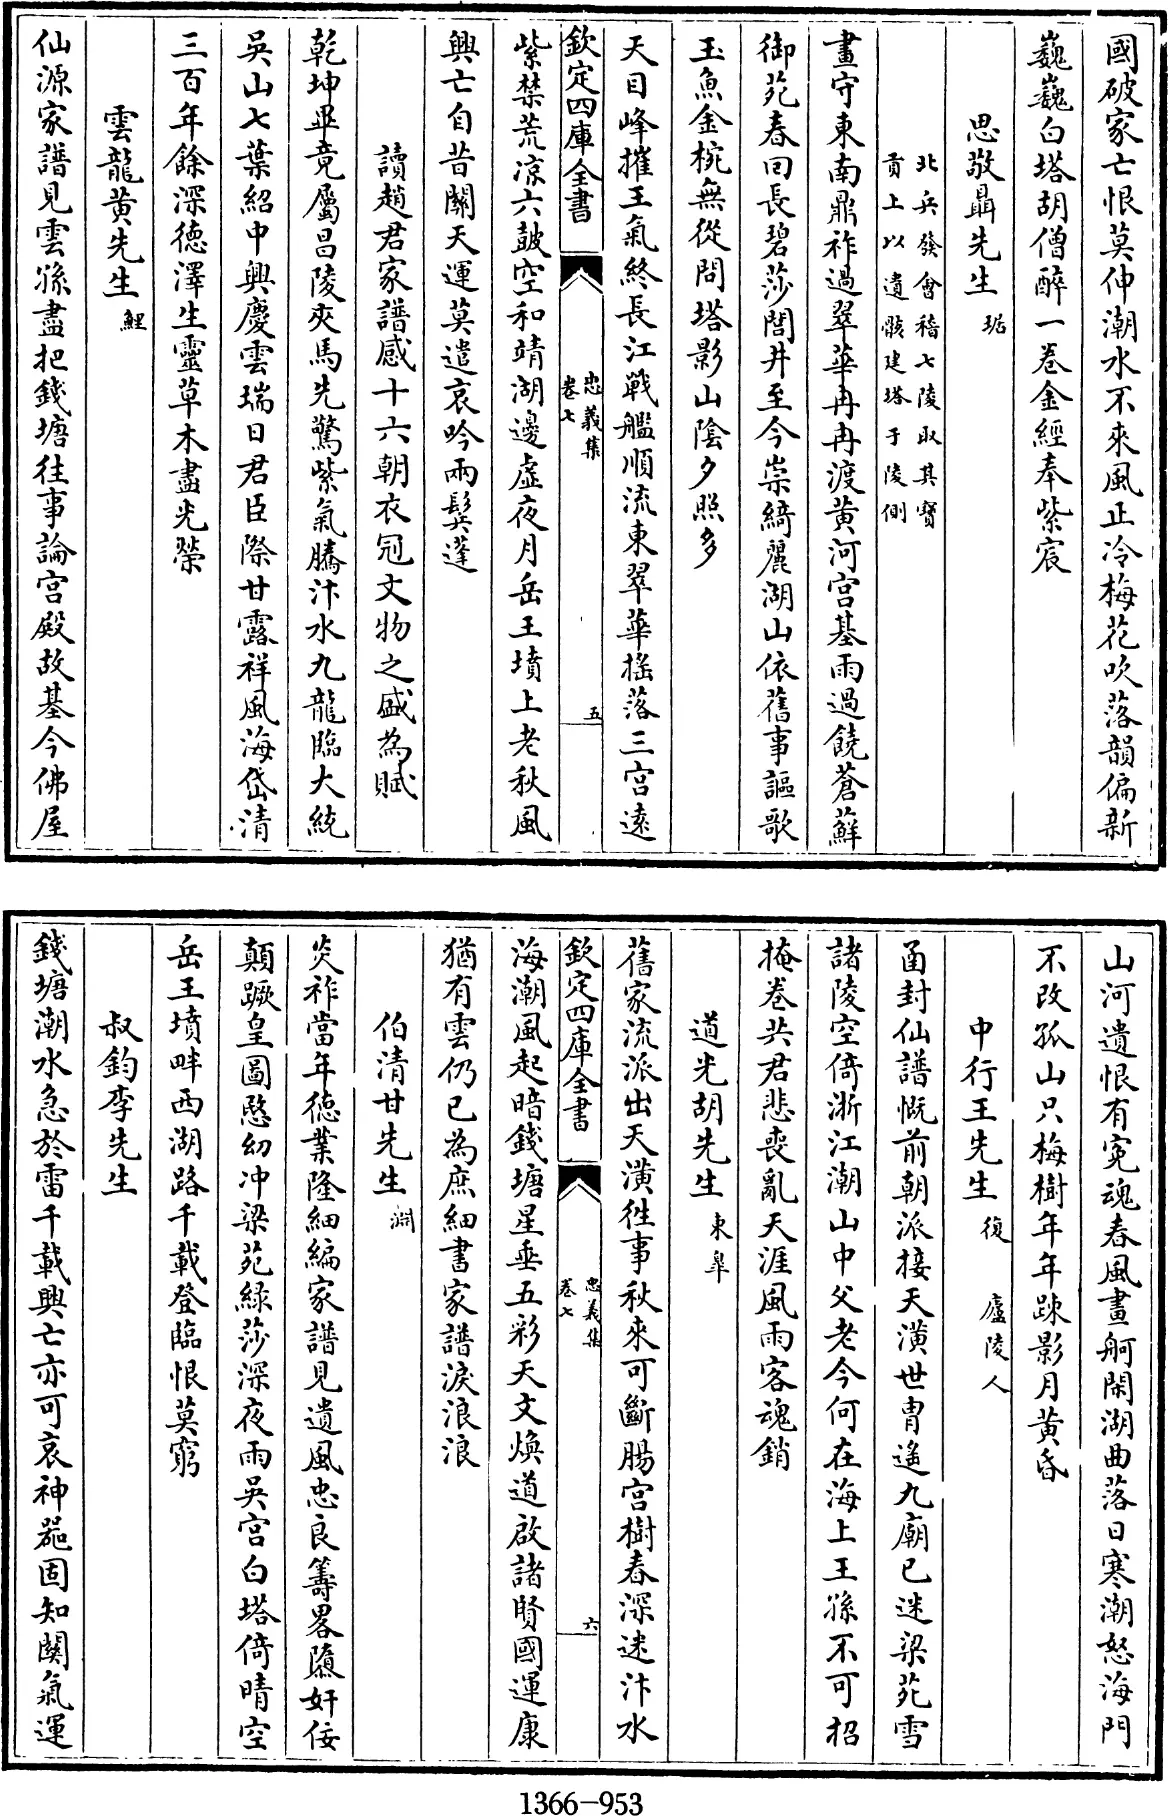 國破家亡恨莫伸潮水不來風正冷梅花吹落韻偏新
巍巍白塔胡僧醉一卷金經奉紫宸
思敬聶先生琚
北兵發會稽七陵取其寶
貢上以遺骸建塔于陵側
畫守東南鼎祚過翠華冉冉渡黄河宫基雨過饒蒼蘚
御苑春回長碧莎閭井至今崇綺麗湖山依舊事謳歌
玉魚金椀無從問塔影山陰夕照多
天目峰摧王氣終長江戰艦順流東翠華揺落三宫遠
欽定四庫全書
忠義集
卷七
五
紫禁荒凉六皷空和靖湖邊虚夜月岳王墳上老秋風
興亡自昔關天運莫遣哀吟兩鬂蓬
讀趙君家譜感十六朝衣冠文物之盛為賦
乾坤畢竟屬昌陵夾馬先驚紫氣騰汴水九龍臨大統
吳山七葉紹中興慶雲瑞日君臣際甘露祥風海岱清
三百年餘深德澤生靈草木盡光榮
雲龍黄先生鯉
仙源家譜見雲孫盡把錢塘往事論宫殿故基今佛屋
山河遺恨有寃魂春風畫舸閑湖曲落日寒潮怒海門
不改孤山只梅樹年年踈影月黄昏
中行王先生復 廬陵人
函封仙譜慨前朝派接天潢世胄遙九廟已迷梁苑雪
諸陵空倚浙江潮山中父老今何在海上王孫不可招
掩卷共君悲喪亂天涯風雨客魂銷
道光胡先生東皐
舊家流派出天潢徃事秋來可斷腸宫樹春深迷汴水
欽定四庫全書
忠義集
卷七
六
海潮風起暗錢塘星垂五彩天文煥道啟諸賢國運康
猶有雲仍已為庶細書家譜淚浪浪
伯清甘先生淵
炎祚當年德業隆細編家譜見遺風忠良籌畧隳奸佞
顛蹶皇圖愍幼冲梁苑緑莎深夜雨吳宫白塔倚晴空
岳王墳畔西湖路千載登臨恨莫窮
叔鈞李先生
錢塘潮水急於雷千載興亡亦可哀神噐固知關氣運
1366-953